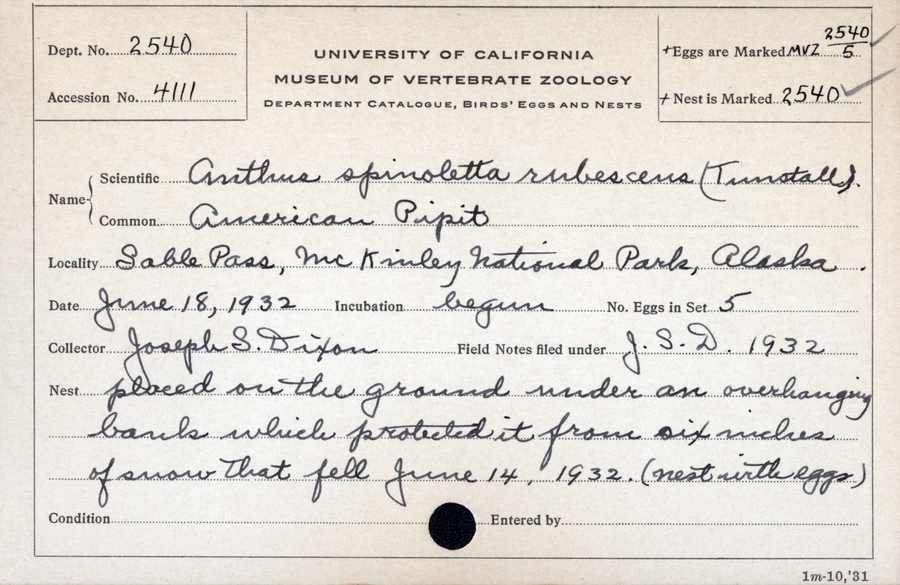 Dept. No. 2540
Accession No. 4111
UNIVERSITY OF CALIFORNIA
MUSEUM OF VERTEBRATE ZOOLOGY
DEPARTMENT CATALOGUE, BIRDS' EGGS AND NESTS
+Eggs are Marked MVZ 2540/5
+ Nest is Marked 2540
Name { Scientific Anthus spinoletta rubescens (Tunstall).
Common American Pipit
Locality Sable Pass, McKinley National Park, Alaska.
Date June 18, 1932 Incubation begun No. Eggs in Set 5
Collector Joseph S. Dixon Field Notes filed under J. S. D. 1932
Nest placed on the ground under an overhanging
bank which protected it from six inches
of snow that fell June 14, 1932. (nest with eggs)
Condition Entered by
1m-10,'31